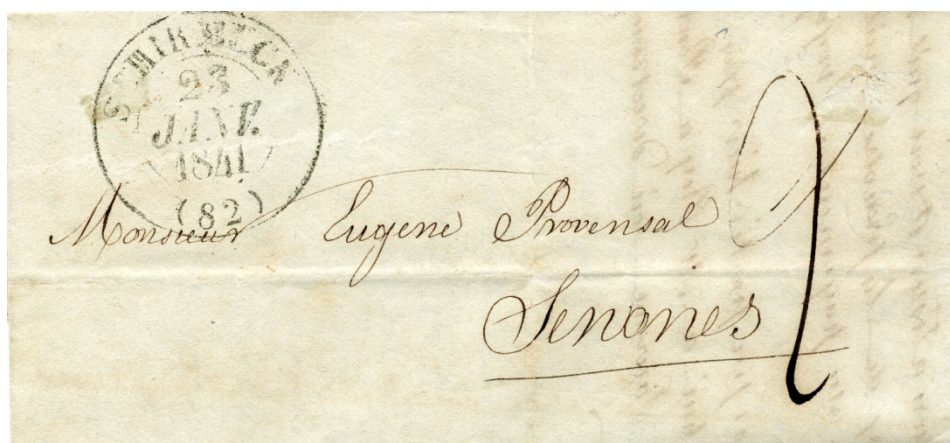 SCHIRMECK
23
JANV.
1841
(82)
Monsieur Eugene Provensal
Senones
2